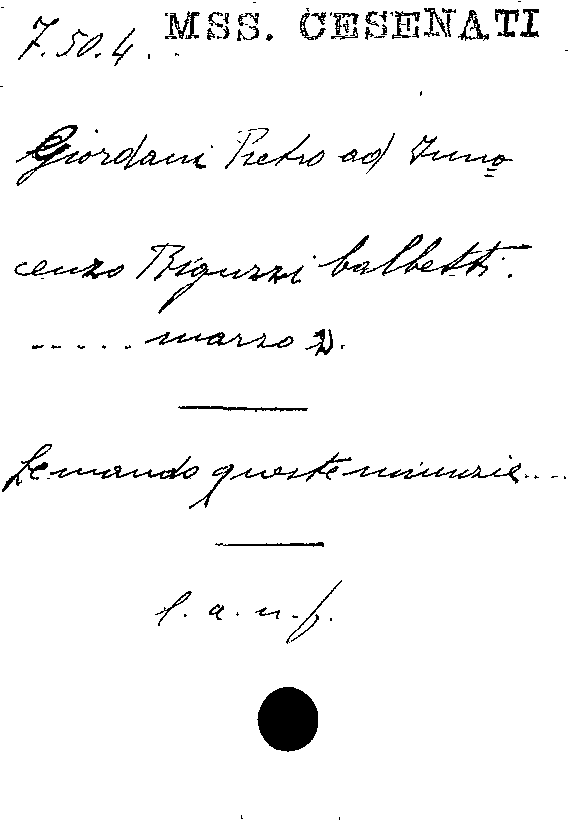 7.50.4. MSS. CESENATI
Giordani Pietro ad Inno
cenzo Biguzzi balbetti.
..... marzo 2.
Le mando queste minuzie....
l. a. n. f.